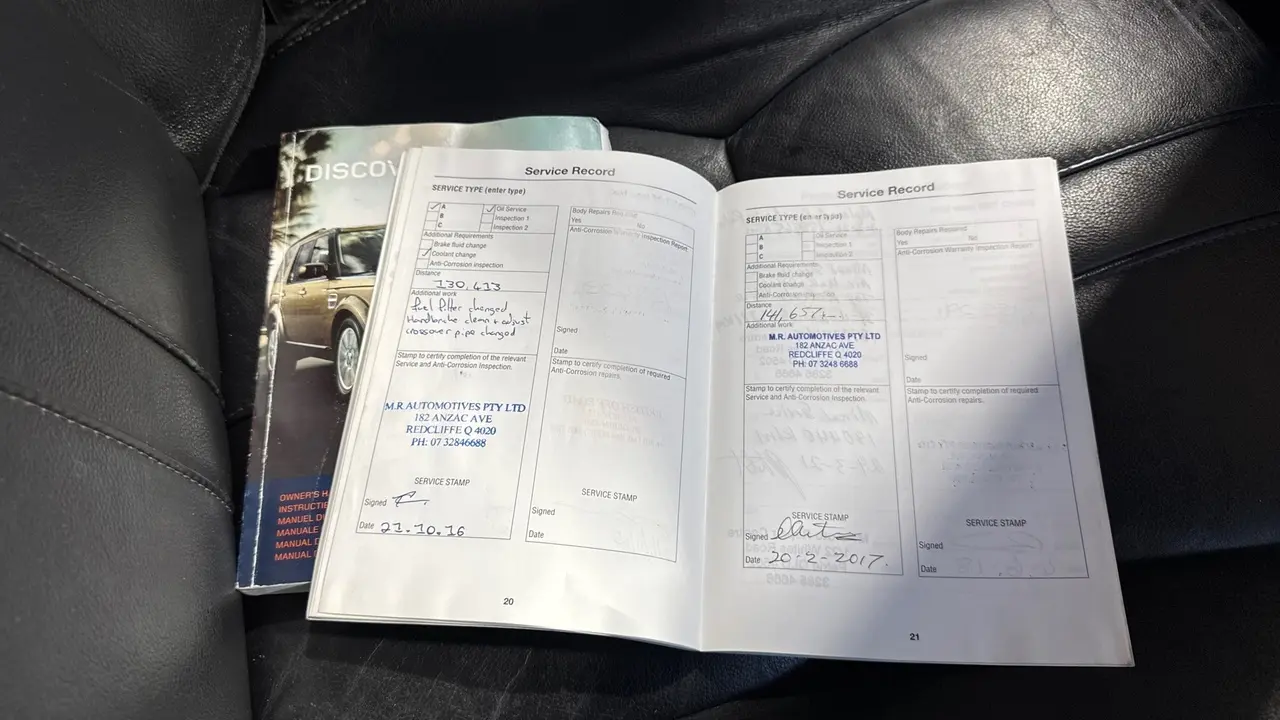 DISCOV
OWNER'S H
INSTRUCTIE
MANUEL D
MANUALE
MANUAL D
MANUAL
Service Record
SERVICE TYPE (enter type)
A Oil Service
B Inspection 1
C Inspection 2
Additional Requirements
Brake fluid change
Coolant change
Anti-Corrosion inspection
Distance
130,413
Additional work
fuel filter changed
Handbrake clean & adjust
crossover pipe changed
Stamp to certify completion of the relevant
Service and Anti-Corrosion Inspection.
M.R.AUTOMOTIVES PTY LTD
182 ANZAC AVE
REDCLIFFE Q 4020
PH: 07 32846688
SERVICE STAMP
Signed
Date 21.10.16
Body Repairs Required
Yes No
Anti-Corrosion Warranty Inspection Report
Signed
Date
Stamp to certify completion of required
Anti-Corrosion repairs.
SERVICE STAMP
Signed
Date
20
Service Record
SERVICE TYPE (enter type)
A Oil Service
B Inspection 1
C Inspection 2
Additional Requirements
Brake fluid change
Coolant change
Anti-Corrosion inspection
Distance
Additional work
M.R. AUTOMOTIVES PTY LTD
182 ANZAC AVE
REDCLIFFE Q 4020
PH: 07 3248 6688
Stamp to certify completion of the relevant
Service and Anti-Corrosion Inspection.
SERVICE STAMP
Signed
Date 20-2-2017.
Body Repairs Required
Yes No
Anti-Corrosion Warranty Inspection Report
Signed
Date
Stamp to certify completion of required
Anti-Corrosion repairs.
SERVICE STAMP
Signed
Date
21